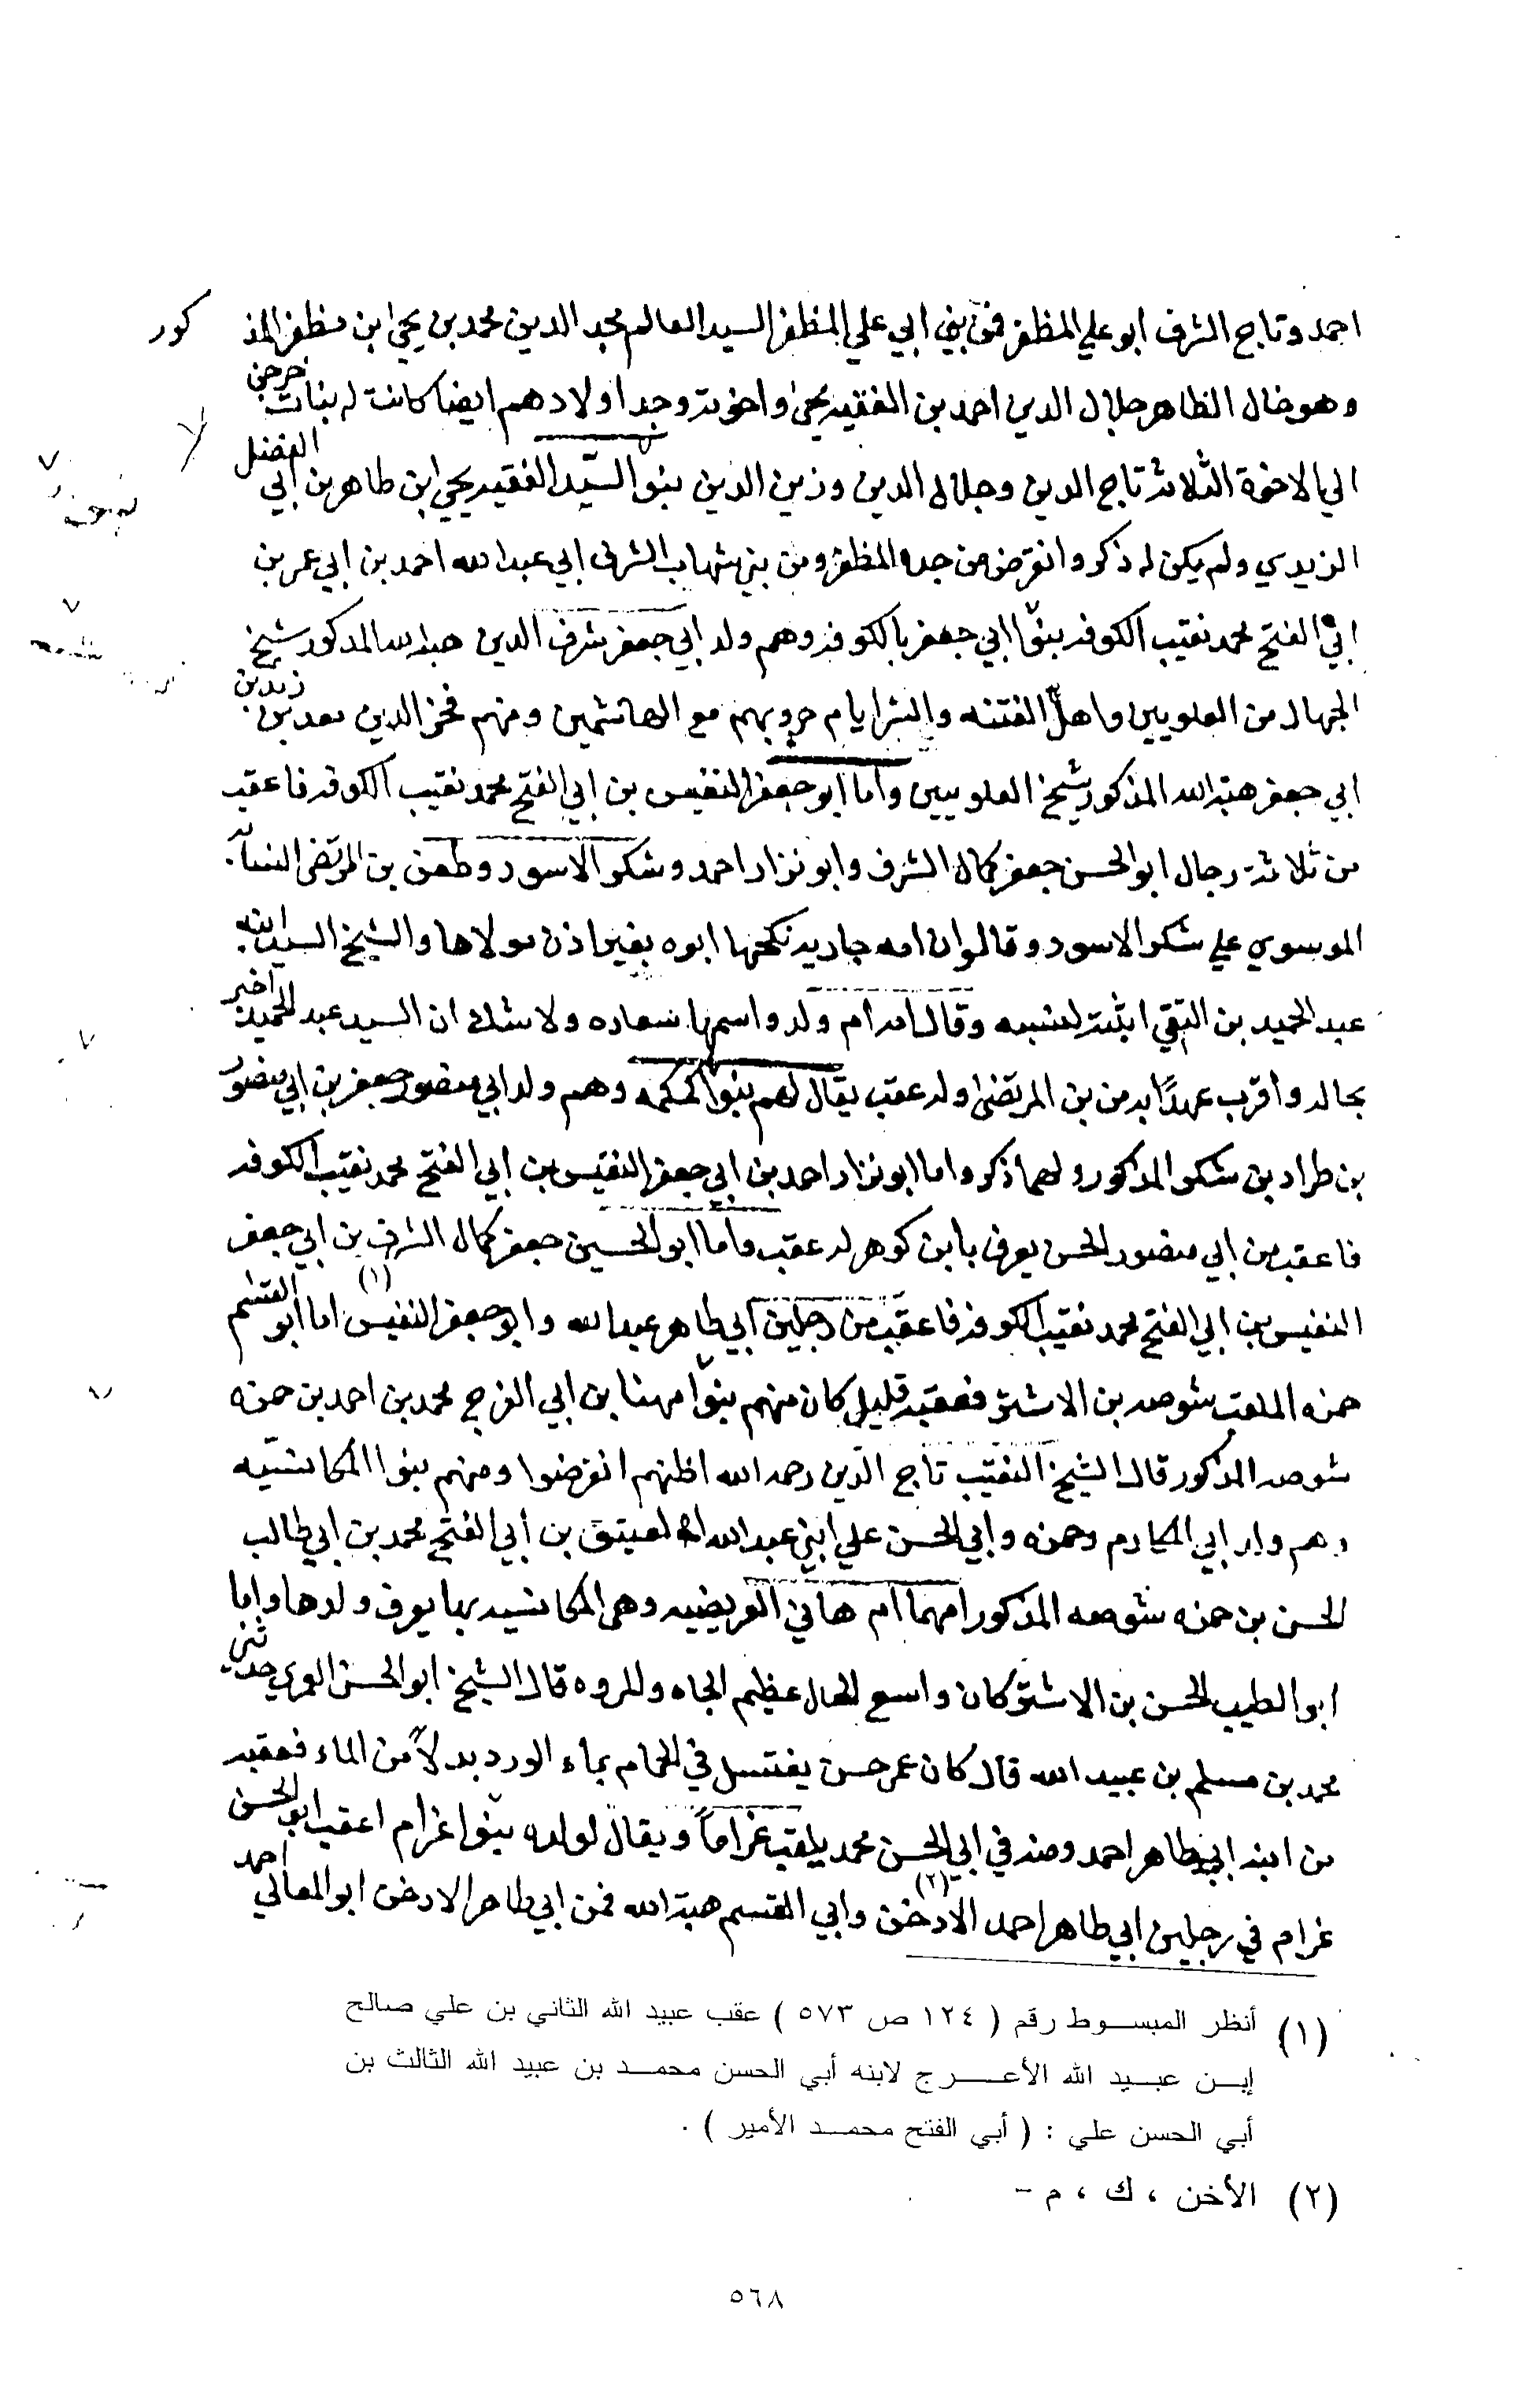 احمد وتاج الشرف ابو علي المظفر فمن بني ابي علي المظفر السيد العالم مجد الدين محمد بن يحيى ابن مظفر المذكور
وهو خال الطاهر جلال الدين احمد بن الفقيه يحيى واخوته وجد اولادهم ايضا كانت له بنات خرجن
الي الاخوة الثلاثة تاج الدين وجلال الدين وزين الدين بنو السيد الفقيه يحيى ابن طاهر بن ابي الفضل
الزيدي ولم يكن له ذكر وانقرض من جده المظفر ومن بني شهاب الشرف ابي عبد الله احمد بن ابي عمر بن
ابي الفتح محمد نقيب الكوفه بنوا ابي جعفر بالكوفه وهم ولد ابي جعفر شرف الدين هبة الله المذكور شيخ
الجهال من العلويين واهل الفتنه والشر ايام حروبهم مع الهاشميين ومنهم فخر الدين معد بن زيد بن
ابي جعفر هبة الله المذكور شيخ العلويين واما ابو جعفر النفيس بن ابي الفتح محمد نقيب الكوفه فاعقب
من ثلاثة رجال ابو الحسن جعفر كمال الشرف وابو نزار احمد وشكر الاسود وطعن بن المرتضى النسابه
الموسوي علي شكر الاسود وقال وان امه جاريه نكحها ابوه بغير اذن مولاها والشيخ السيد
عبد الحميد بن التقي اثبته لعشبه وقال امه ام ولد واسمها سعاده ولا شك ان السيد عبد الحميد اخبر
بحاله واقرب عهدًا به من بن المرتضى وله عقب يقال لهم بنوا كمكمه وهم ولد ابي منصور جعفر بن ابي منصور
بن طراد بن شكر المذكور ولهما ذكر واما ابو نزار احمد بن ابي جعفر النفيس بن ابي الفتح محمد نقيب الكوفه
فاعقب من ابي منصور الحسن يعرف بابن كوهر له عقب واما ابو الحسين جعفر كمال الشرف بن ابي جعفر
النفيس بن ابي الفتح محمد نقيب الكوفه فاعقب من رجلين ابي طاهر عبد الله وابو جعفر النفيس (١) اما ابو القسم
حمزه الملقب شوصه بن الاشتر فعقبه قليل كان منهم بنوا مهنا بن ابي الفرج محمد بن احمد بن حمزه
شوصه المذكور قال الشيخ النقيب تاج الدين رحمه الله اظنهم انقرضوا ومنهم بنوا المكانسيه
وهم ولد ابي المكارم وحمزه وابي الحسن علي ابني عبد الله العتيق بن ابي الفتح محمد بن ابي طالب
الحسن بن حمزه شوصه المذكور امهما ام هاني العريضيه وهي المكانسيه بها يعرف ولدها واما
ابو الطيب الحسن بن الاشتر كان واسع الحال عظيم الجاه والمروه قال الشيخ ابو الحسن العمري حدثني
محمد بن مسلم بن عبيد الله قال كان عمر حسن يغتسل في الحمام بماء الورد بدلاً من الماء فعقبه
من ابنه ابي طاهر احمد ومنه في ابي الحسن محمد يلقب غراماً ويقال لولده بنوا غرام اعقب ابو الحسن
غرام في رجلين ابي طاهر احمد الادخن (٢) وابي القسم هبة الله فمن ابي طاهر الادخن ابو المعالي احمد
(١) أنظر المبسوط رقم ( ١٢٤ ص ٥٧٣ ) عقب عبيد الله الثاني بن علي صالح
إبن عبيد الله الأعرج لابنه أبي الحسن محمد بن عبيد الله الثالث بن
أبي الحسن علي : ( أبي الفتح محمد الأمير ) .
(٢) الأخن ، ك ، م -
٥٦٨